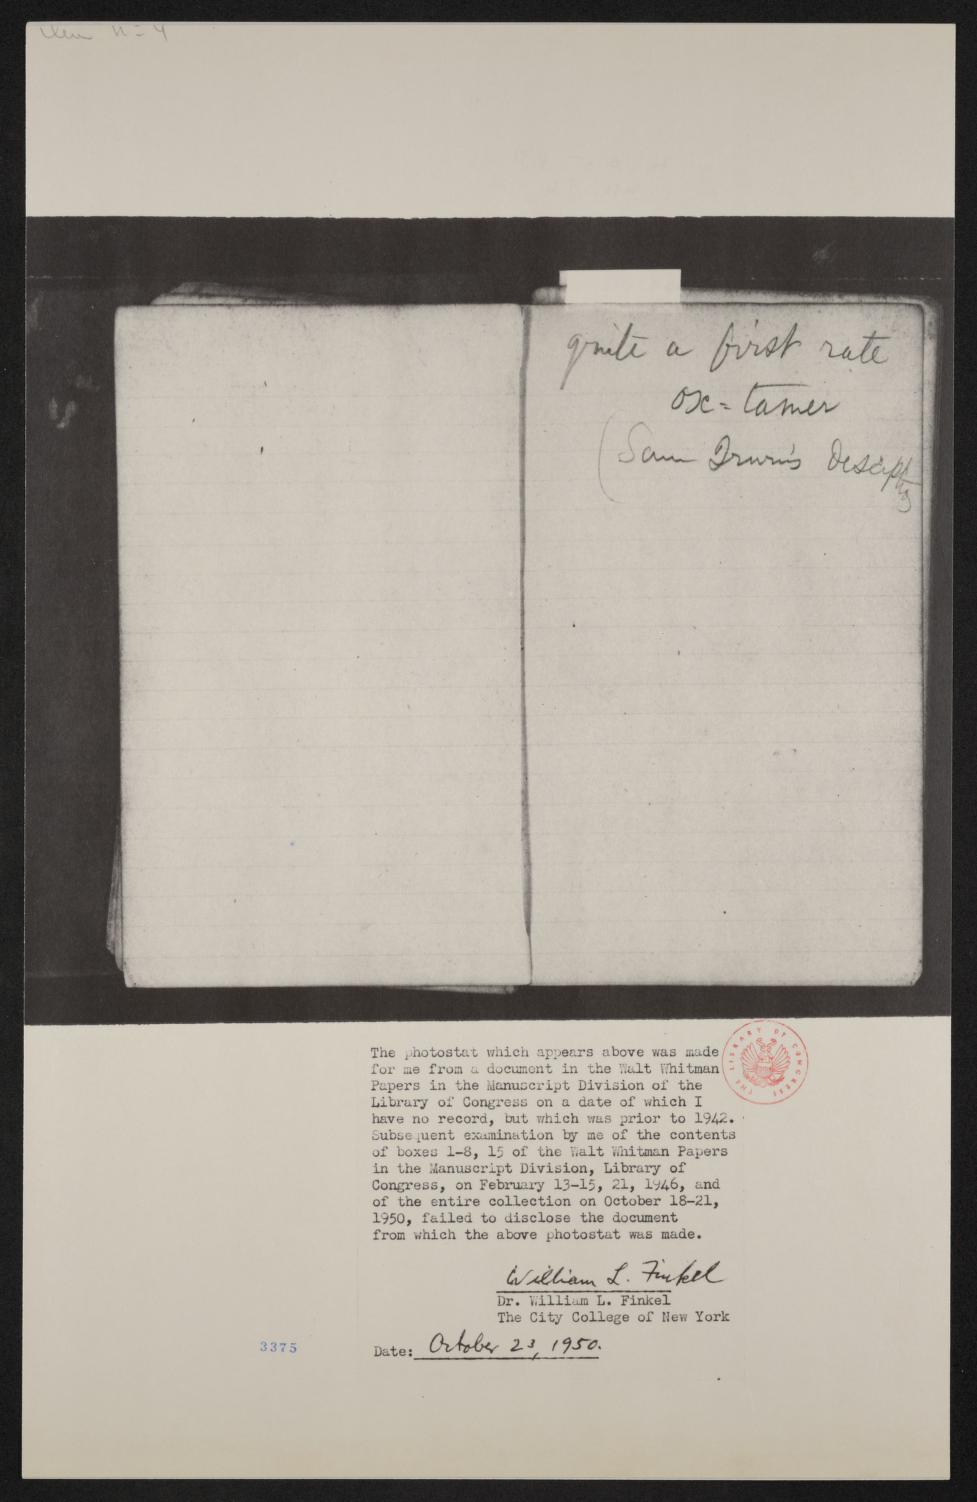 quite a first rate
ox-tamer
(Sam
The photostat which appears above was made
for me from a document in the Walt Whitman
Papers in the Manuscript Division of the
Library of Congress on a date of which I
have no record, but which was prior to 1942.
Subsequent examination by me of the contents
of boxes 1-8, 15 of the Walt Whitman Papers
in the Manuscript Division, Library of
Congress, on February 13-15, 21, 1946, and
of the entire collection on October 18-21,
1950, failed to disclose the document
from which the above photostat was made.
William L. Finkel
Dr. William L. Finkel
The City College of New York
Date: October 23, 1950.
3375
THE LIBRARY OF CONGRESS